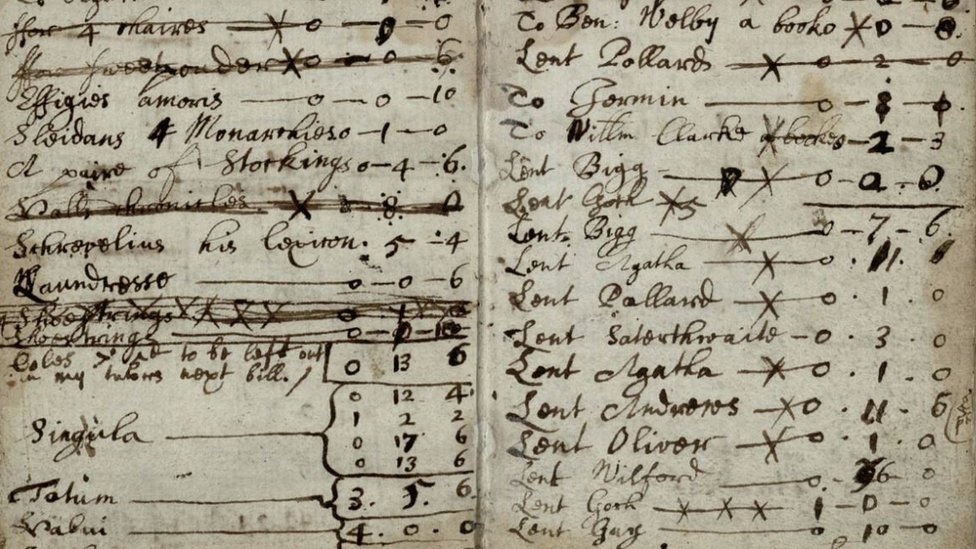 ffor 4 chaires —X— 0
X 0 — 0 — 6.
Effigies amoris — 0 — 0 — 10
Sleidans 4 Monarchies 0 — 1 — 0
A paire of Stockings 0 — 4 — 6.
Halls chronicles X 8. 0
Schrevelius his lexicon. 5 — 4
Laundresse — 0 — 0 — 6
Shoestrings XXXX
Shoestrings — 0
to be left out
in my tutors next bill. 0 13 6
0 12 4.
1 2 2
Singula
0 17 6
0 13 6
Totum 3. 5. 6
Habui 4. 0. 0
To Ben: Welby a booke X 0
Lent Pollard — X — 0 — 2 — 0
To Jermin — 0
To Willm Clarke X — 2 — 3
Lent Bigg — X — 0
Lent X
Lent Bigg — X — 0 — 7 — 6.
Lent Agatha — X — 0 . 11.
Lent Pollard — X — 0 . 1 . 0
Lent Saterthwaite — 0 . 3 . 0
Lent Agatha — X — 0 . 1 . 0
Lent Andrews — X 0 . 11 . 6
Lent Oliver — X — 0 . 1 . 0
Lent Wilford — 0 6 0
Lent — X X X — 1 — 0 — 0
Lent — 0 10 0